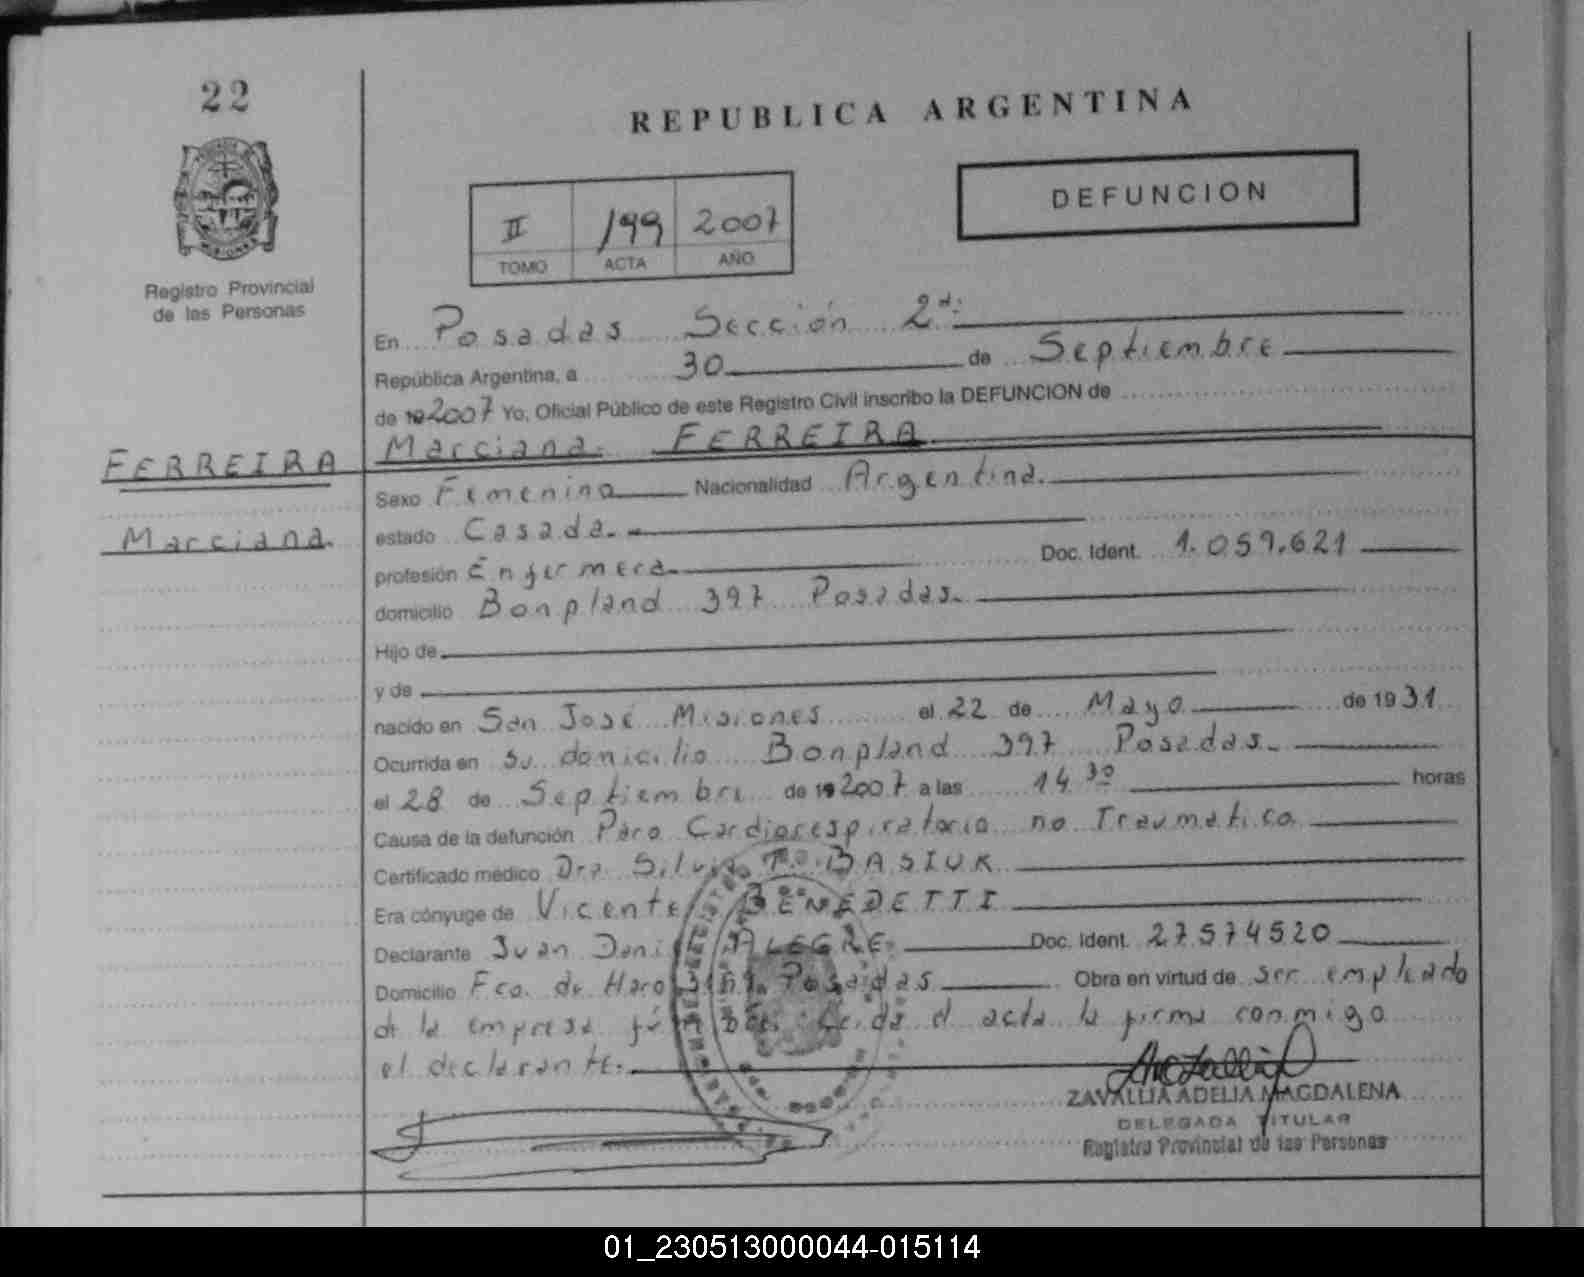 22
REPUBLICA ARGENTINA
DEFUNCION
II 199 2007
TOMO ACTA AÑO
Registro Provincial
de las Personas
En Posadas Sección 2da:
República Argentina, a 30 de Septiembre
de 192007 Yo, Oficial Público de este Registro Civil inscribo la DEFUNCION de
Marciana FERREIRA
FERREIRA
Marciana.
Sexo Femenino Nacionalidad Argentina.
estado Casada.
Doc. Ident. 1.059.621
profesión Enfermera
domicilio Bonpland 397 Posadas.
Hijo de
y de
nacido en San José Misiones el 22 de Mayo de 1931
Ocurrida en su domicilio Bonpland 397 Posadas.
el 28 de Septiembre de 192007 a las 14 30 horas
Causa de la defunción Paro Cardiorespiratorio no Traumatico
Certificado médico Dra. Silvia BASIUK
Era cónyuge de Vicente BENEDETTI
Declarante Juan Daniel ALEGRE. Doc. Ident. 27.574520
Domicilio Fco. de Haro Posadas Obra en virtud de ser empleado
de la empresa Leida el acta la firma conmigo
el declarante.
ZAVALLIA ADELIA MAGDALENA
DELEGADA TITULAR
Registro Provincial de las Personas
01_230513000044-015114